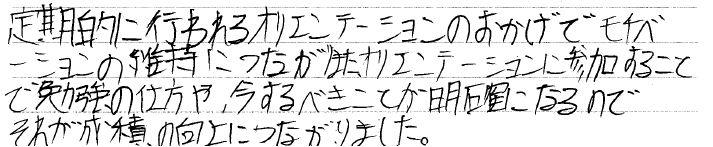 定期的に行われるオリエンテーションのおかげでモチベ
ーションの維持につながりまたオリエンテーションに参加すること
で勉強の仕方や、今するべきことが明確になるので
それが成積の向上につながりました。